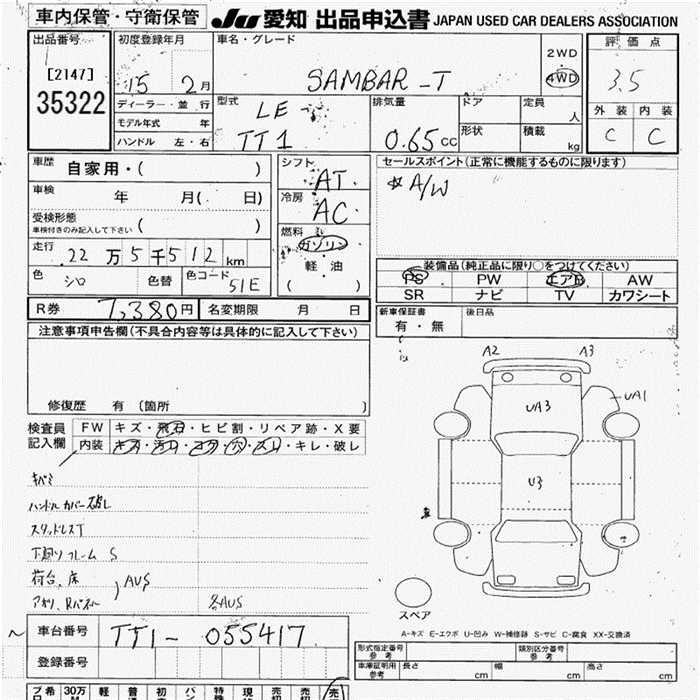 車内保管・守衛保管 JU 愛知 出品申込書 JAPAN USED CAR DEALERS ASSOCIATION
出品番号 初度登録年月 車名・グレード 2WD 評価点
[2147] 15 2月 SAMBAR-T 4WD 3.5
35322 ディーラー・並行 型式 LE 排気量 ドア 定員 人 外装 内装
モデル年式 年 形状 積載 C C
ハンドル 左・右 TT1 0.65cc kg
車歴 自家用・( ) シフト AT セールスポイント(正常に機能するものに限ります)
車検 年 月( 日) 冷房 AC ※A/W
受検形態
車検付きのみ記入して下さい ( ) 燃料 ガソリン
走行 22万5千512km 軽・油 装備品(純正品に限り○をつけてください)
色 シロ 色替 色コード 51E ( ) PS PW エアB AW
SR ナビ TV カワシート
R券 7,380円 名変期限 月 日 新車保証書 後日品
有・無
注意事項申告欄(不具合内容等は具体的に記入して下さい)
A2 A3
UA3 UA1
修復歴 有(箇所
検査員 FW キズ・飛石・ヒビ割・リペア跡・X要
記入欄 内装 キズ・汚れ・コゲ・穴・スレ・キレ・破レ
U3
キバミ
ハンドルカバー破レ
スタッドレスT
下廻りフレーム S
荷台、床
アオリ、Rパネル ) AUS 各AUS
スペア
A-キズ E-エクボ U-凹み W-補修跡 S-サビ C-腐食 XX-交換済
車台番号 TT1-055417
登録番号
形式指定番号 参考 類別区分番号 参考
車庫証明用 参考 長さ cm 幅 cm 高さ cm